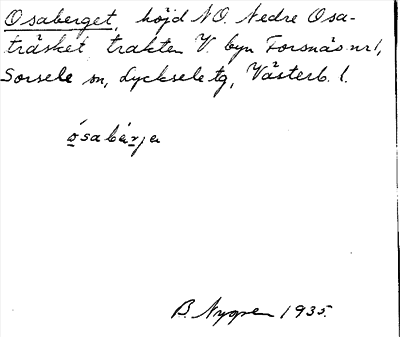 Osaberget, höjd NO. Nedre Osa-
träsket trakten V. byn Forsnäs nr 1,
Sorsele sn, Lycksele tg, Västerb. l.
ósabárja
B. Nygren 1935.